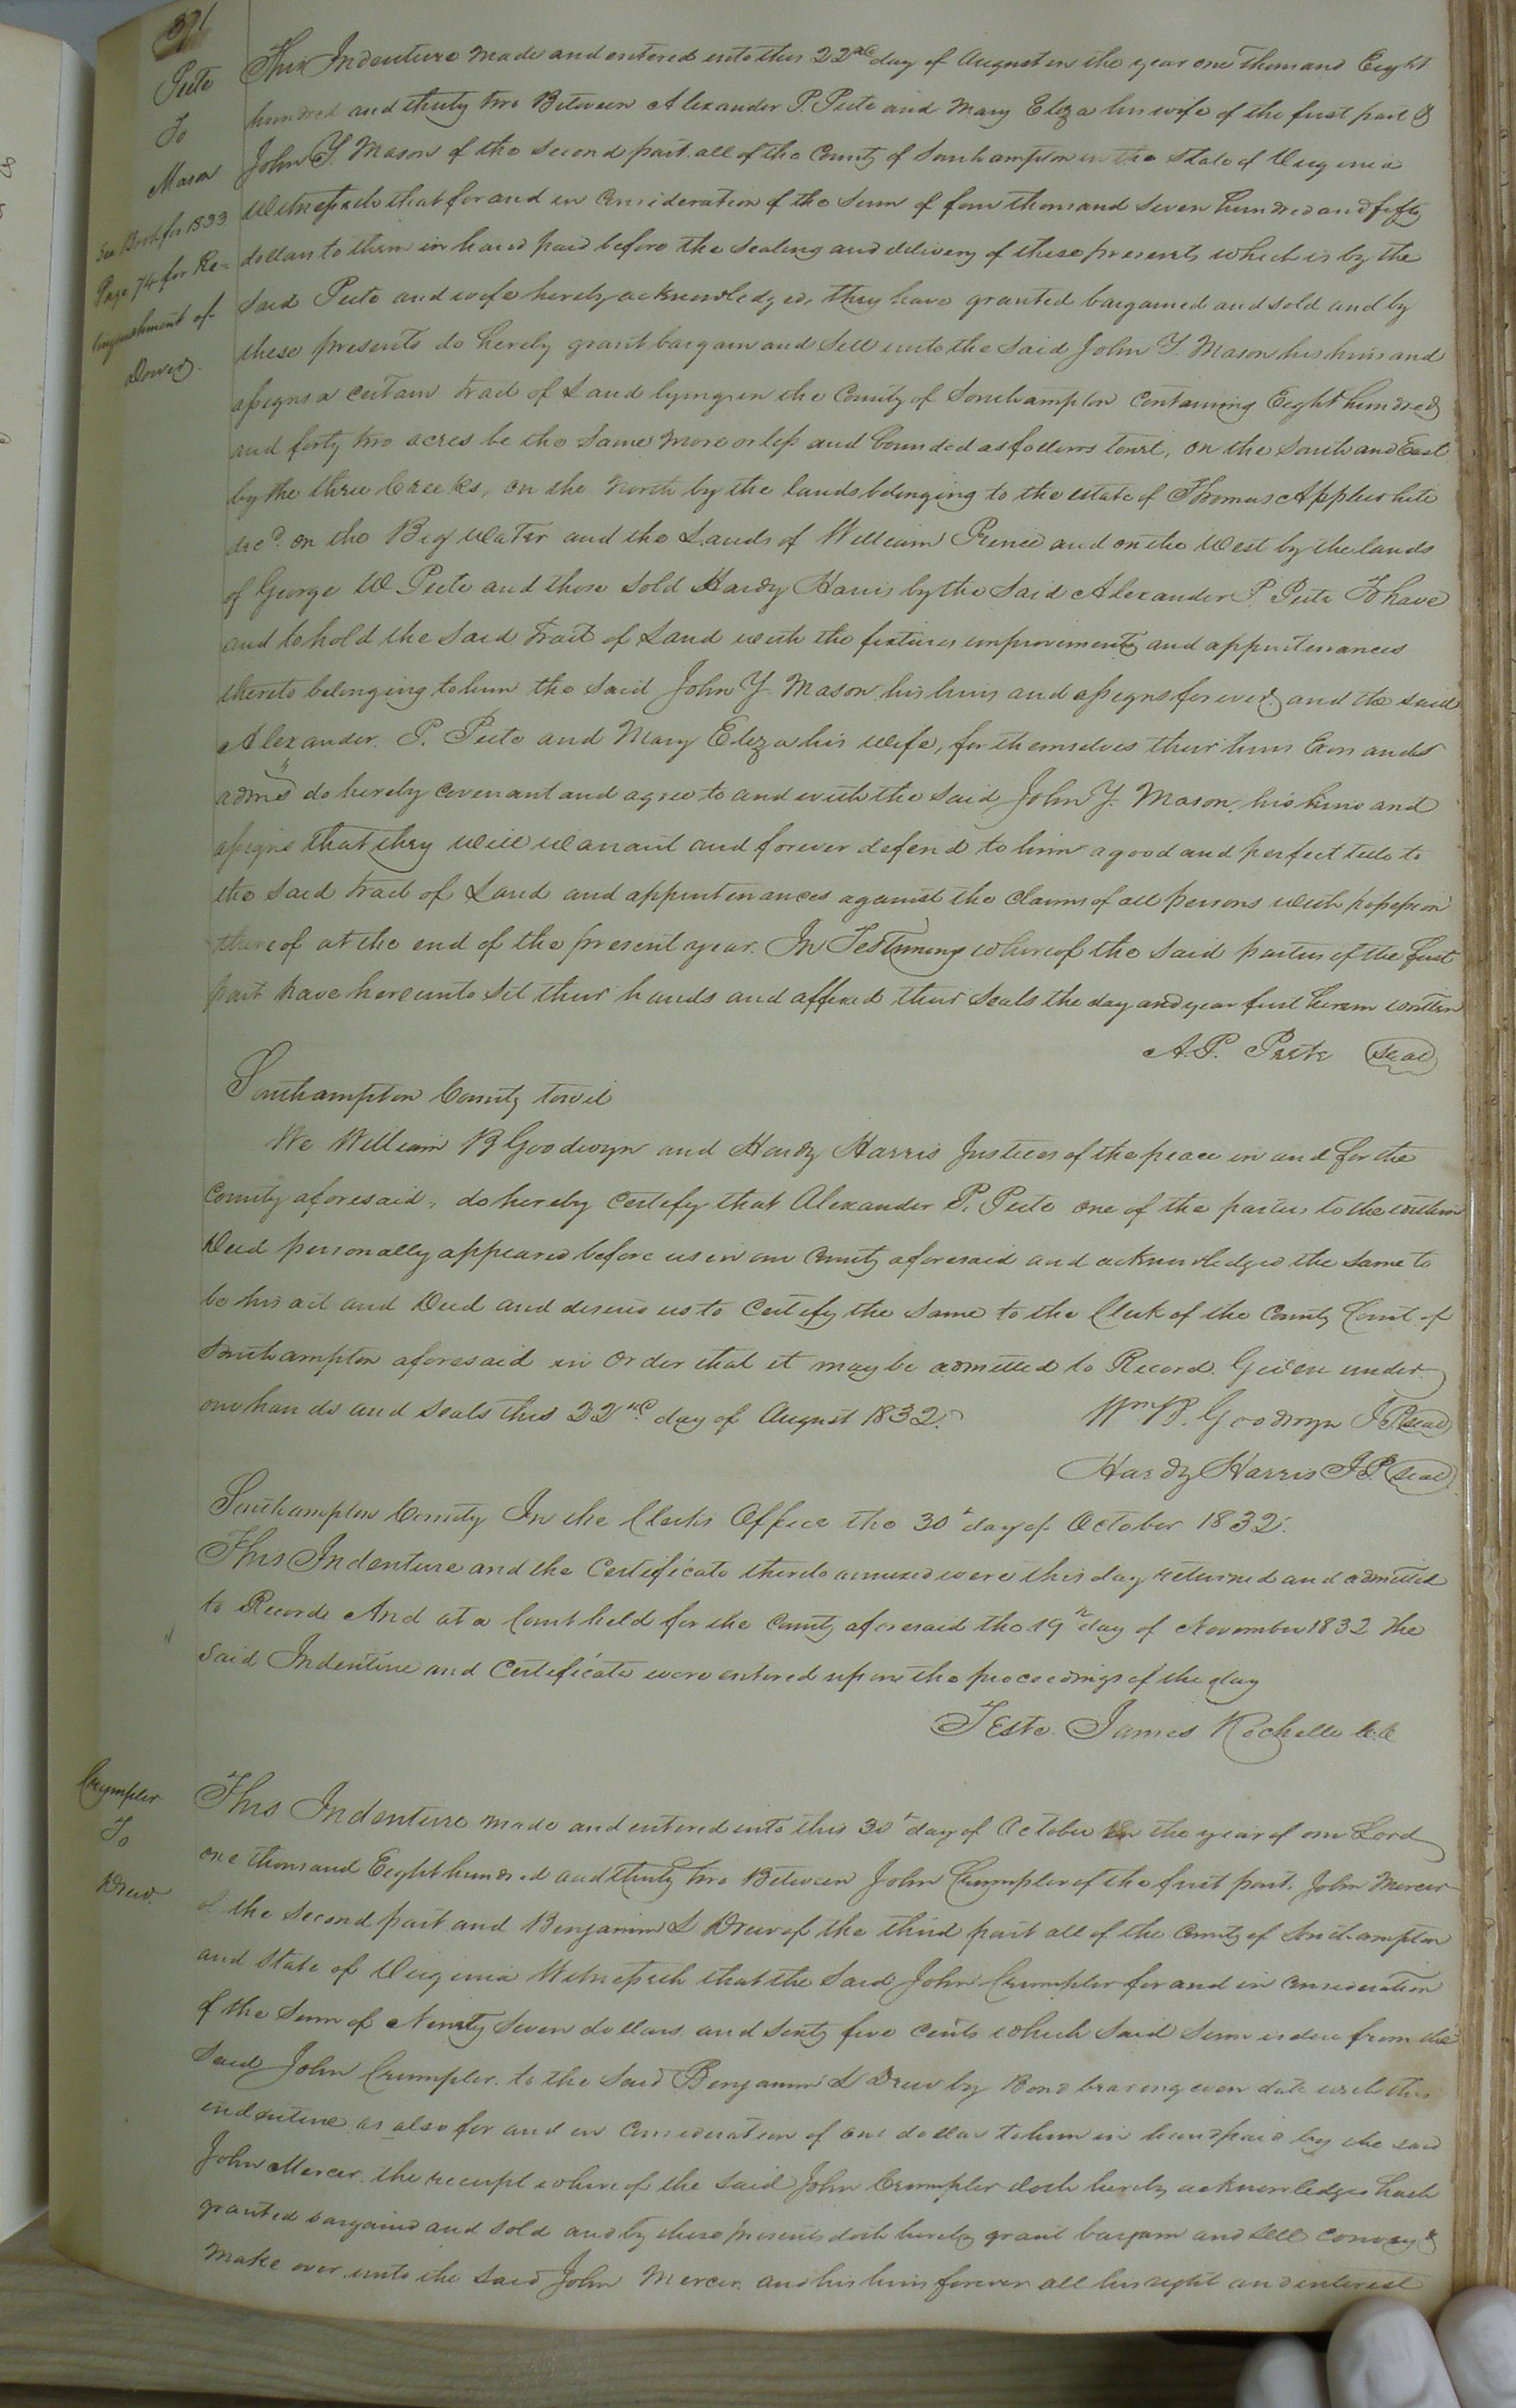 371
Peete
To
Mason
See Book for 1833
Page 74 for Re=
linquishment of
Dower.
This Indenture made and entered into this 22nd day of August in the year one thousand Eight
hundred and thirty two Between Alexander P. Peete and Mary Eliza his wife of the first part &
John Y. Mason of the second part all of the County of Southampton in the State of Virginia
Witnesseth that for and in Consideration of the sum of four thousand seven hundred and fifty
dollars to them in hand paid before the sealing and delivery of these presents which is by the
said Peete and wife hereby acknowledged, they have granted bargained and sold and by
these presents do hereby grant bargain and sell unto the said John Y. Mason his heirs and
assigns a certain tract of Land lying in the County of Southampton Containing Eight hundred
and forty two acres be the same more or less and bounded as follows towit, on the South and East
by the three Creeks, on the North by the lands belonging to the estate of Thomas Applewhite
decd. on the Big Water and the Lands of William Prince and on the West by the lands
of George W Peete and those sold Hardy Harris by the said Alexander P. Peete To have
and to hold the said tract of Land with the fixtures improvements and appurtenances
thereto belonging to him the said John Y. Mason his heirs and assigns forever and the said
Alexander P. Peete and Mary Eliza his wife, for themselves their heirs Exors and
adms do hereby covenant and agree to and with the said John Y. Mason, his heirs and
assigns that they will warrant and forever defend to him a good and perfect title to
the said tract of Land and appurtenances against the claims of all persons with possession
thereof at the end of the present year. In Testimony whereof the said parties of the first
part have hereunto set their hands and affixed their seals the day and year first herein written
A.P. Peete Seal
Southampton County towit
We William B Goodwyn and Hardy Harris Justices of the peace in and for the
County aforesaid, do hereby certify that Alexander P. Peete one of the parties to the within
Deed personally appeared before us in our County aforesaid and acknowledged the same to
be his act and Deed and desired us to Certify the same to the Clerk of the County Court of
Southampton aforesaid in order that it may be admitted to Record. Given under
our hands and seals this 22nd day of August 1832.
Wm B. Goodwyn J.P. Seal
Hardy Harris J.P. Seal
Southampton County In the Clerks Office the 30th day of October 1832.
This Indenture and the Certificate thereto annexed were this day returned and admitted
to Record. And at a Court held for the County aforesaid the 19th day of November 1832 The
said Indenture and Certificate were entered upon the proceedings of the day
Teste. James Rochelle C.C
Crumpler
To
Drew
This Indenture made and entered into this 30th day of October in the year of our Lord
one thousand Eight hundred and thirty two Between John Crumpler of the first part, John Mercer
of the second part and Benjamin L Drew of the third part all of the County of Southampton
and State of Virginia Witnesseth that the said John Crumpler for and in consideration
of the sum of Ninety seven dollars and sixty five cents which said sum is due from the
said John Crumpler to the said Benjamin L Drew by Bond bearing even date with this
indenture as also for and in Consideration of one dollar to him in hand paid by the said
John Mercer. the receipt whereof the said John Crumpler doth hereby acknowledge hath
granted bargained and sold and by these presents doth hereby grant bargain and sell convey &
make over unto the said John Mercer and his heirs forever all his right and interest